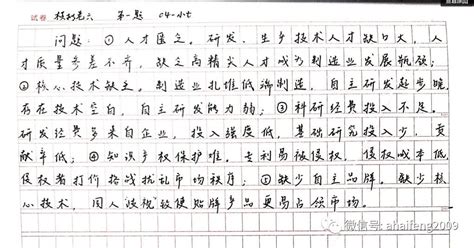 试卷 模拟卷六 第一题 C4-小七
问题：①人才匮乏。研发、生产技术人才缺口大，人
才质量参差不齐，缺乏高精尖人才成为制造业发展瓶颈；
②核心技术缺乏。制造业扎堆低端制造，自主研发起步晚，
存在技术空白，自主研发能力弱；③科研经费投入不足。
研发经费多来自企业，投入强度低，基础研究投入少，贡
献率低；④知识产权保护难。专利易被侵权，侵权成本低，
侵权者打价格战扰乱市场秩序；⑤缺少自主品牌。缺少核
心技术，国人歧视致使贴牌产品更易占领市场。
微信号: ahaifeng2009